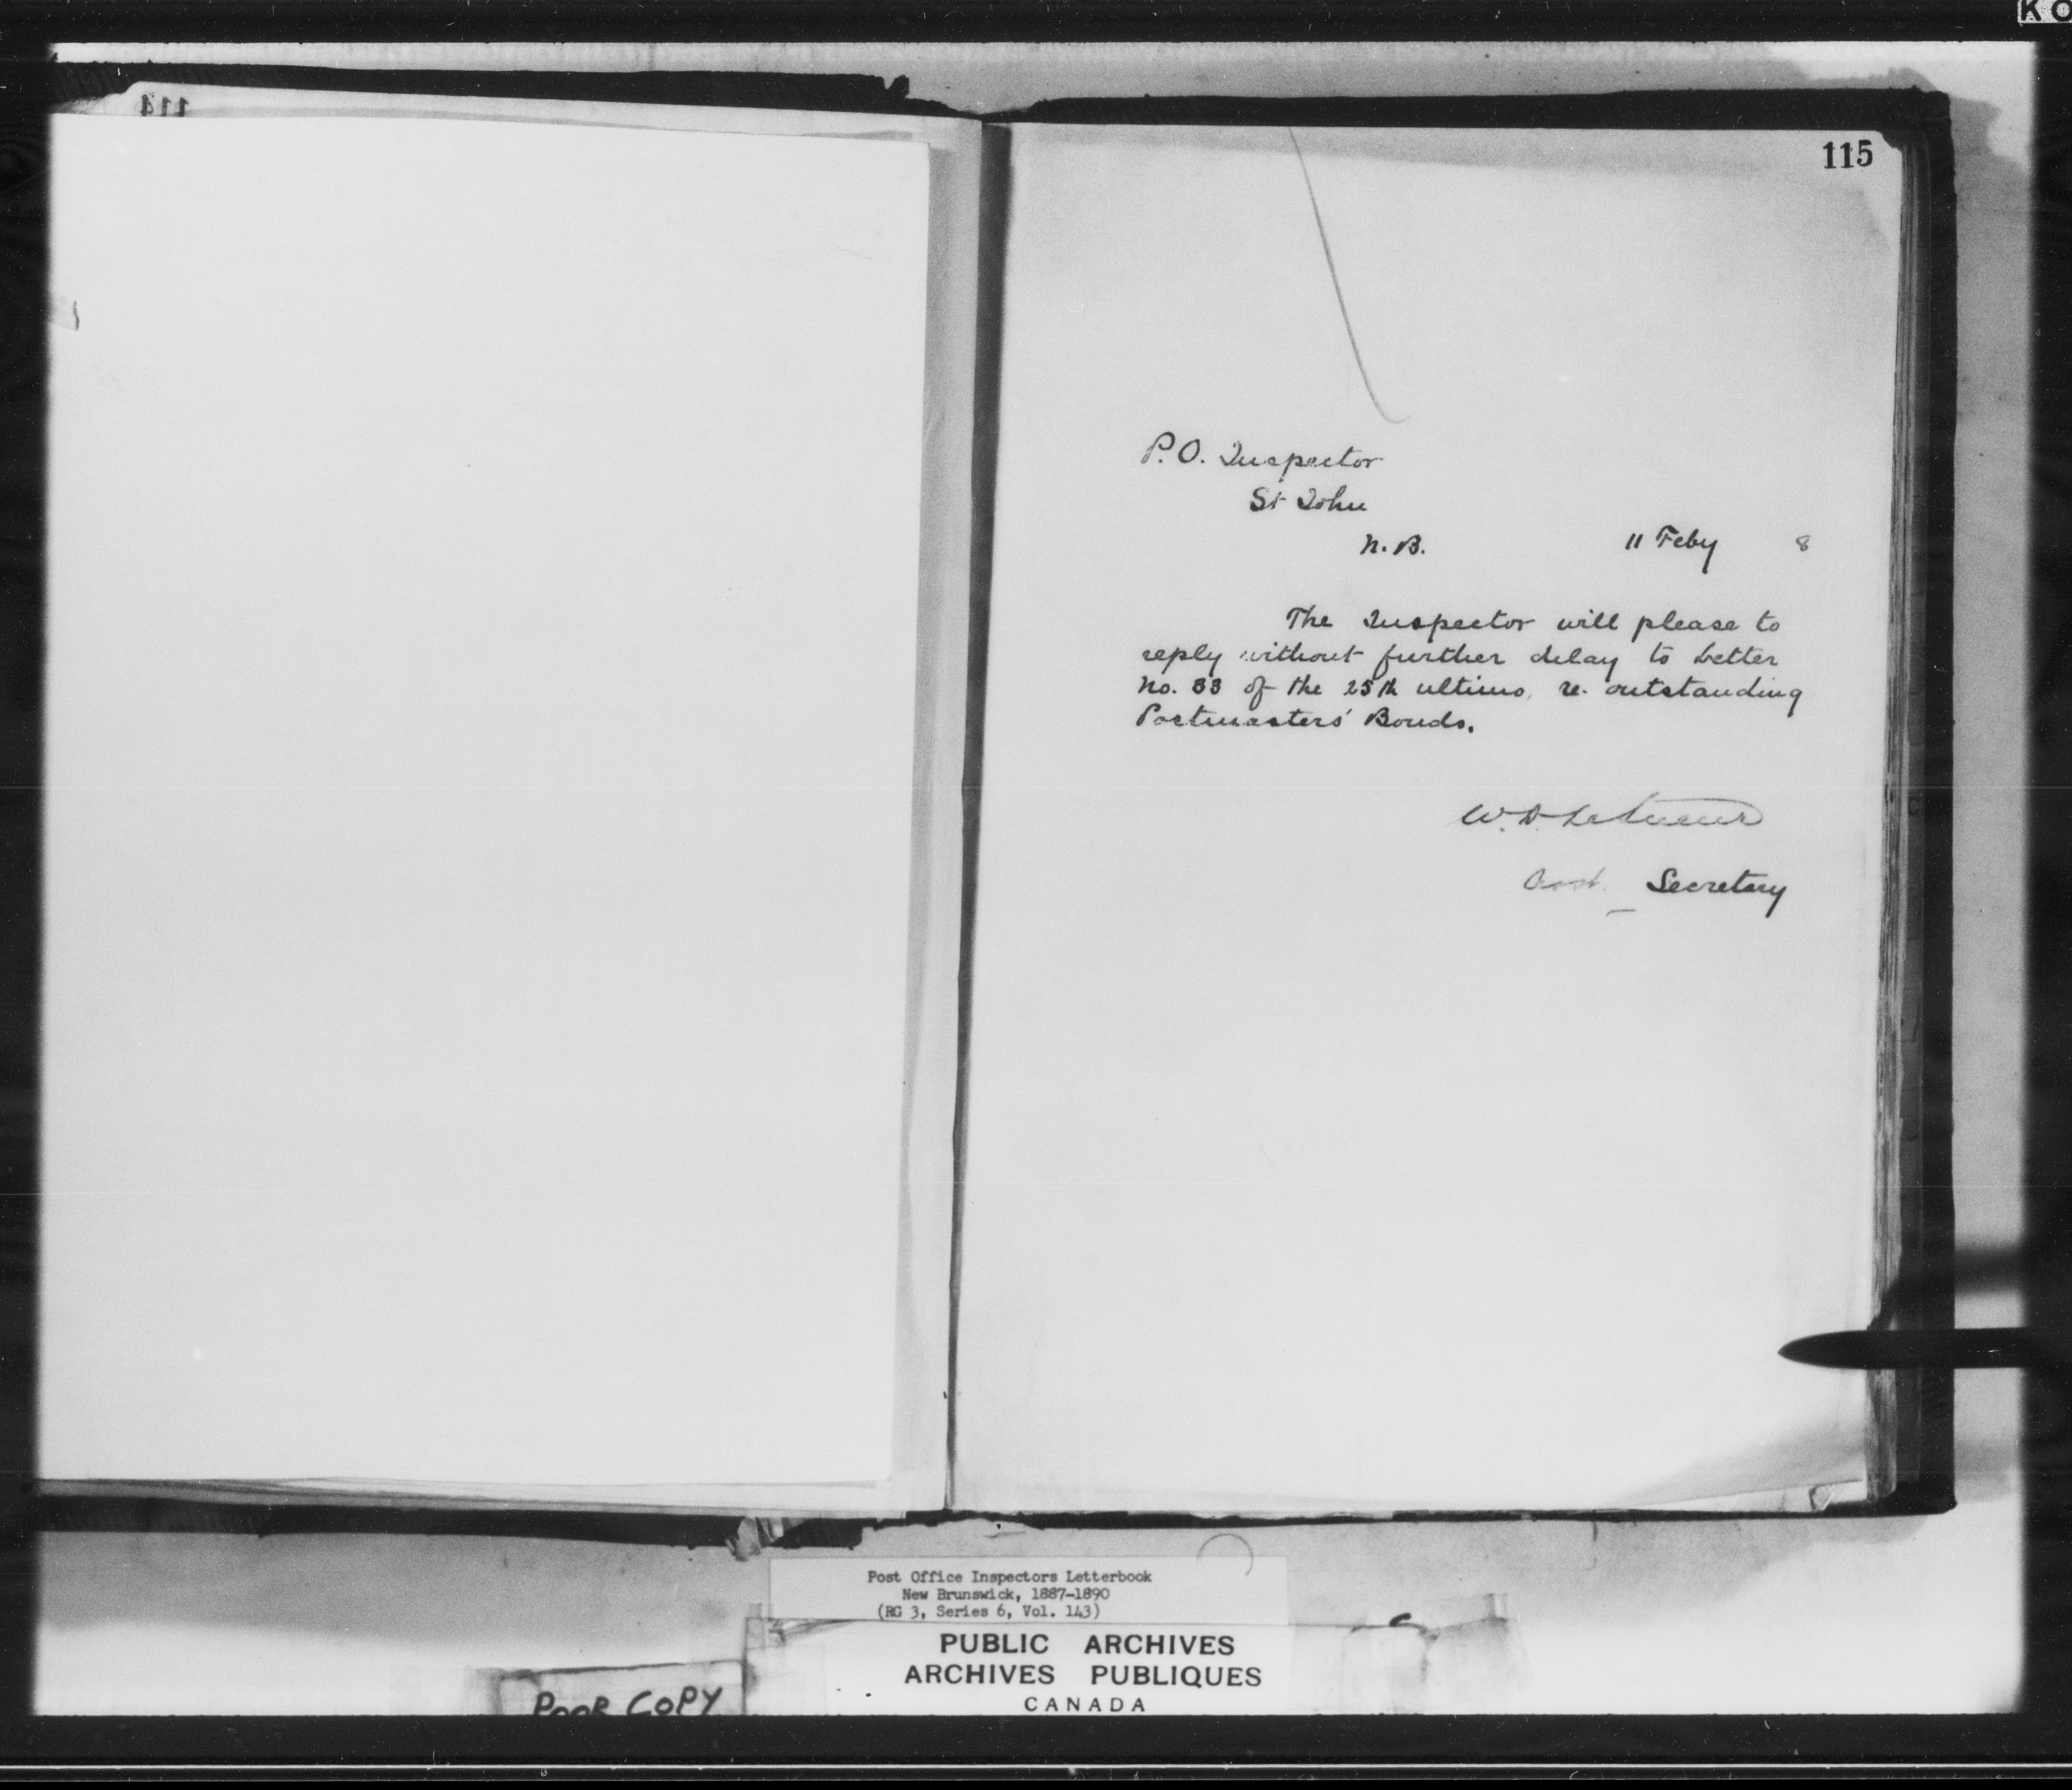 KO
114
115
P.O. Inspector
St John
N.B. 11 Feby 8
The Inspector will please to
reply without further delay to letter
No. 33 of the 25th ultimo, re. outstanding
Postmasters' Bonds.
W. D. LeSueur
Asst. Secretary
Post Office Inspectors Letterbook
New Brunswick, 1887-1890
(RG 3, Series 6, Vol. 143)
PUBLIC ARCHIVES
ARCHIVES PUBLIQUES
CANADA
POOR COPY